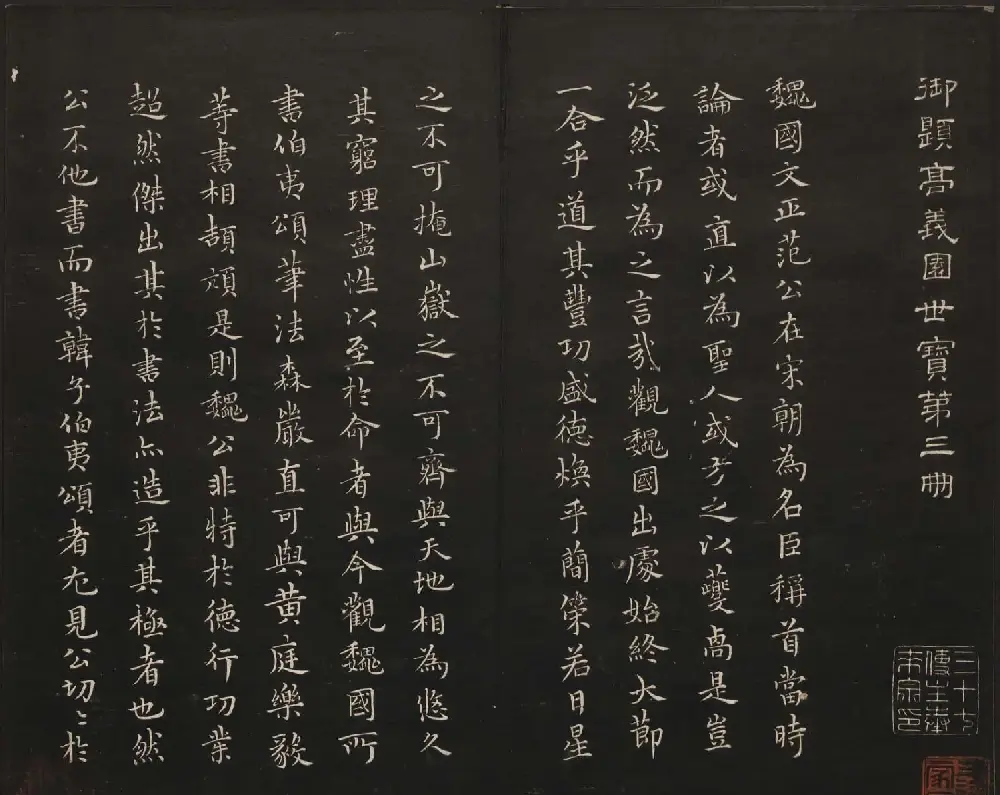 御題高義園世寶第三冊
魏國文正范公在宋朝為名臣稱首當時
論者或直以為聖人或方之以夔卨是豈
泛然而為之言哉觀魏國出處始終大節
一合乎道其豐功盛德煥乎簡策若日星
之不可掩山嶽之不可齊與天地相為悠久
其窮理盡性以至於命者與今觀魏國所
書伯夷頌筆法森嚴直可與黃庭樂毅
等書相頡頏是則魏公非特於德行功業
超然傑出其於書法亦造乎其極者也然
公不他書而書韓子伯夷頌者尤見公切々於